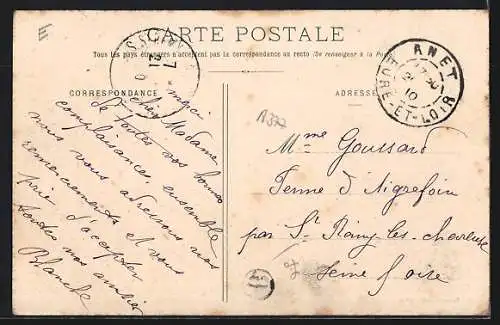 CARTE POSTALE
Tous les pays étrangers n'acceptent pas la correspondance au recto (Se renseigner à la Poste)
CORRESPONDANCE
ADRESSE
ANET
EURE-ET-LOIR
10
A372
merci
chère Madame
de toutes vos bonnes
complaisance, ensemble
nous vous adressons nos
remerciements et vous
prie d'accepter
toutes nos amitiés
Blanche
Mme Goussard
Ferme d'Aigrefoin
par St Rémy-les-Chevreuse
Seine &amp; Oise